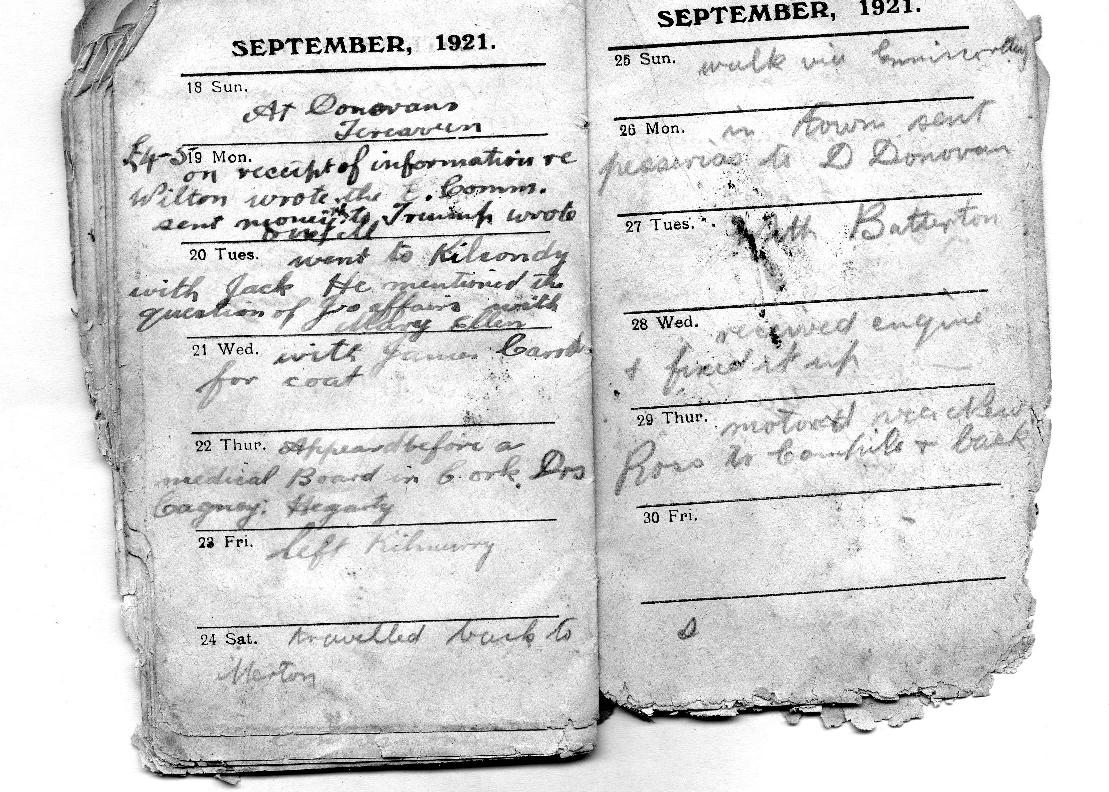 SEPTEMBER, 1921.
18 Sun.
At Donovans
£4-5 19 Mon.
on receipt of information re
Wilton wrote the E. Comm.
sent money to Triumph wrote
20 Tues. went to Kilcondy
with Jack He mentioned the
question of Jos affairs with
Mary Ellen
21 Wed. with James
for coat
22 Thur. Appeard before a
medical Board in Cork. Drs
Cagney: Hegarty
23 Fri. left Kilmurry
24 Sat. travelled back to
Merton
SEPTEMBER, 1921.
25 Sun. walk via Enniscorthy
26 Mon. in town sent
to D Donovan
27 Tues. with Batterton
28 Wed. received engine
& fixed it up
29 Thur. motored New
Ross to & back
30 Fri.